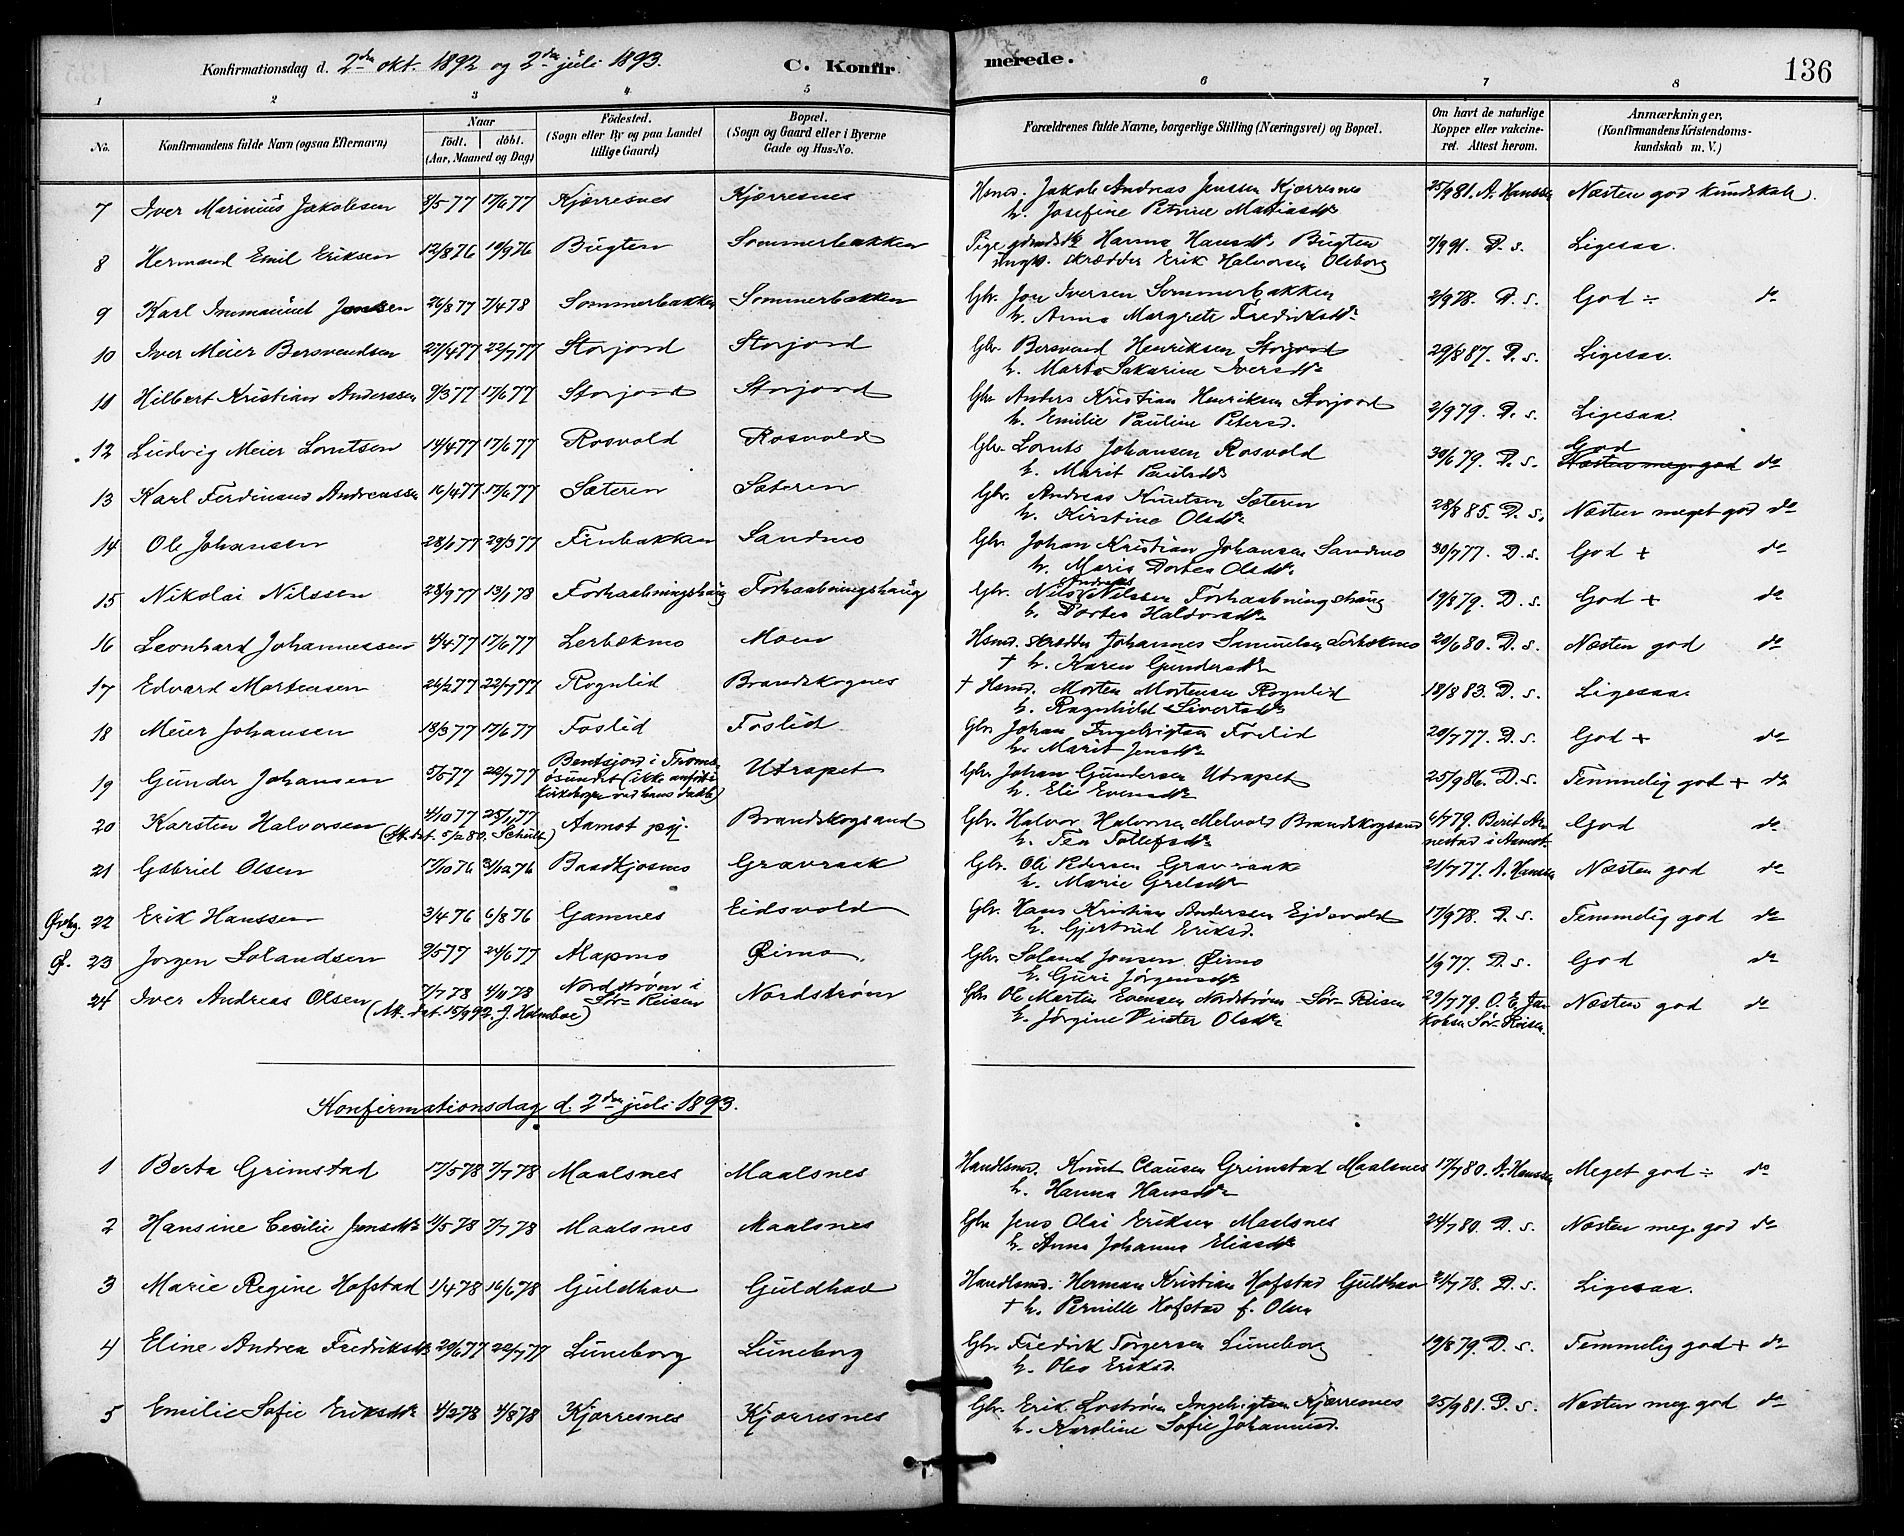 Konfirmationsdag d. 2den okt. 1892 og 2den juli 1893.
C. Konfirmerede.
136
1 2 3 4 5 6 7 8
No.
Konfirmandens fulde Navn (ogsaa Efternavn)
Naar födt. döbt. (Aar, Maaned og Dag)
Födested. (Sogn eller By og paa Landet tillige Gaard)
Bopæl. (Sogn og Gaard eller i Byerne Gade og Hus-No.
Forældrenes fulde Navne, borgerlige Stilling (Næringsvei) og Bopæl.
Om havt de naturlige Kopper eller vakcineret. Attest herom.
Anmærkninger, (Konfirmandens Kristendomskundskab m. V.)
7 Iver Marinius Jakobsen 8/5 77 17/6 77 Kjærresnes Kjærresnes Hsmd. Jakob Andreas Jenssen Kjærresnes 25/9 81. A. Hanssen Næsten god kundskab.
h. Josefine Petrine Mattiasdtr
8 Hermand Emil Eriksen 12/8 76 10/9 76 Bugten Sommerbakken Pige Hanna Hansdtr Bugten 7/9 91. D. s. Ligesaa.
Ungk. skrædder Erik Halvorsen Olsborg
9 Karl Immanuel Jonsen 26/8 77 7/4 78 Sommerbakken Sommerbakken Gbr. Jon Iversen Sommerbakken 2/9 78. D. s. God ÷ do
h. Anna Margrete Fredriksdtr
10 Iver Meier Bersvendsen 27/4 77 22/7 77 Storjord Storjord Gbr. Bersvend Henriksen Storjord 29/8 87. D. s. Ligesaa.
h. Marta Sakarine Iversdtr
11 Hilbert Kristian Anderssen 9/3 77 17/6 77 Storjord Storjord Gbr Anders Kristian Henriksen Storjord 2/9 79. D. s. Ligesaa.
h. Emilie Pauline Petersd.
12 Ludvig Meier Lorntsen 14/4 77 17/6 77 Rosvold Rosvold Gbr. Lornts Johansen Rosvold 30/6 79. D. s. God
h. Marit Paulsdtr Næsten meg. god do
13 Karl Ferdinand Andreassen 16/4 77 17/6 77 Sæteren Sæteren Gbr. Andreas Knutsen Sæteren 28/8 85. D. s. Næsten meget god do
h. Kirstine Olsdtr
14 Ole Johansen 28/1 77 29/3 77 Finbakken Sandmo Gbr. Johan Kristian Johansen Sandmo 30/7 77. D. s. God + do
h. Maria Dortea Olsdtr
15 Nikolai Nilssen 28/9 77 13/1 78 Forhaabningshaug Forhaabningshaug Gbr. Nils Andreas Nilssen Forhaabningshaug 19/8 79. D. s. God + do
h. Dortea Haldorsdtr
16 Leonhard Johannessen 4/4 77 17/6 77 Lerbækmo Moen Hsmd. skrædder Johannes Samuelsen Lerbækmo 20/6 80. D. s. Næsten god do
† h. Karen Gundersdtr
17 Edvard Mortensen 26/2 77 22/7 77 Rognlid Brandskognes † Hsmd. Morten Mortensen Rognlid 18/8 83. D. s. Ligesaa.
h. Ragnhild Sivertsdtr
18 Meier Johansen 18/3 77 17/6 77 Foslid Foslid Gbr Johan Ingebrigtsen Foslid 20/7 77. D. s. God + do
h. Marit Jensdtr
19 Gunder Johansen 5/5 77 22/7 77 Bentsjord i Tromsøsundet (ikke anført i kirkebogen ved hans daab) Utrapet Gbr Johan Gundersen Utrapet 25/9 86. D. s. Temmelig god + do
h. Eli Evensdtr
20 Karsten Halvorsen 4/10 77 25/11 77 Aamot pgj. Brandskogsand Gbr. Halvor Halvorsen Melvold Brandskogsand 6/7 79. Berit Arnestad i Aamot. God do
(Att. dat. 5/2 80. Schulte) h. Tea Tollefsdtr
21 Gabriel Olsen 17/10 76 31/12 76 Baadkjosmo Gravraak Gbr. Ole Pedersen Gravraak 21/7 77. A. Hanssen Næsten god do
h. Marie Grelsdtr
22 Erik Hanssen 3/4 76 6/8 76 Gamnes Eidsvold Gbr. Hans Kristian Andersen Ejdsvold 17/9 78. D. s. Temmelig god do
h. Gjertrud Eriksd.
Ø. 23 Jørgen Solandsen 9/5 77 24/6 77 Alapmo Øimo Gbr. Soland Jonsen Øimo 1/9 77. D. s. God do
h. Guri Jørgensdtr
24 Iver Andreas Olsen 7/7 78 4/11 78 Nordstrøm i Sør-Reisen Nordstrøm Gbr Ole Martin Evensen Nordstrøm Sør-Reisen 29/7 79. O. E. Jakobsen Sør-Reisen. Næsten god do
(Att. dat. 15/9 92. J. Holmboe) h. Jørgine Olsdtr
Konfirmationsdag d. 2den juli 1893.
1 Berta Grimstad 17/5 78 7/7 78 Maalsnes Maalsnes Handlsmd. Knut Clausen Grimstad Maalsnes 17/7 80. A. Hanssen Meget god ÷ do
h. Hanna Hansdtr
2 Hansine Cecilie Jensdtr 4/5 78 7/7 78 Maalsnes Maalsnes Gbr Jens Olai Eriksen Maalsnes 24/7 80. D. s. Næsten meg. god do
h. Anna Johanna Eliasdtr
3 Marie Regine Hofstad 1/4 78 16/6 78 Guldhav Guldhav Handlsmd. Herman Kristian Hofstad Guldhav 21/7 78. D. s. Ligesaa.
† h. Pernille Hofstad f. Olsen
4 Eline Andrea Fredriksdtr 20/6 77 22/7 77 Luneborg Luneborg Gbr. Fredrik Torgersen Luneborg 19/8 79. D. s. Temmelig god + do
h. Olea Eriksd.
5 Emilie Sofie Eriksdtr 4/2 78 4/8 78 Kjærresnes Kjærresnes Gbr. Erik Ingebrigtsen Kjærresnes 25/9 81. D. s. Næsten meg. god do
h. Karoline Sofie Johannesd.